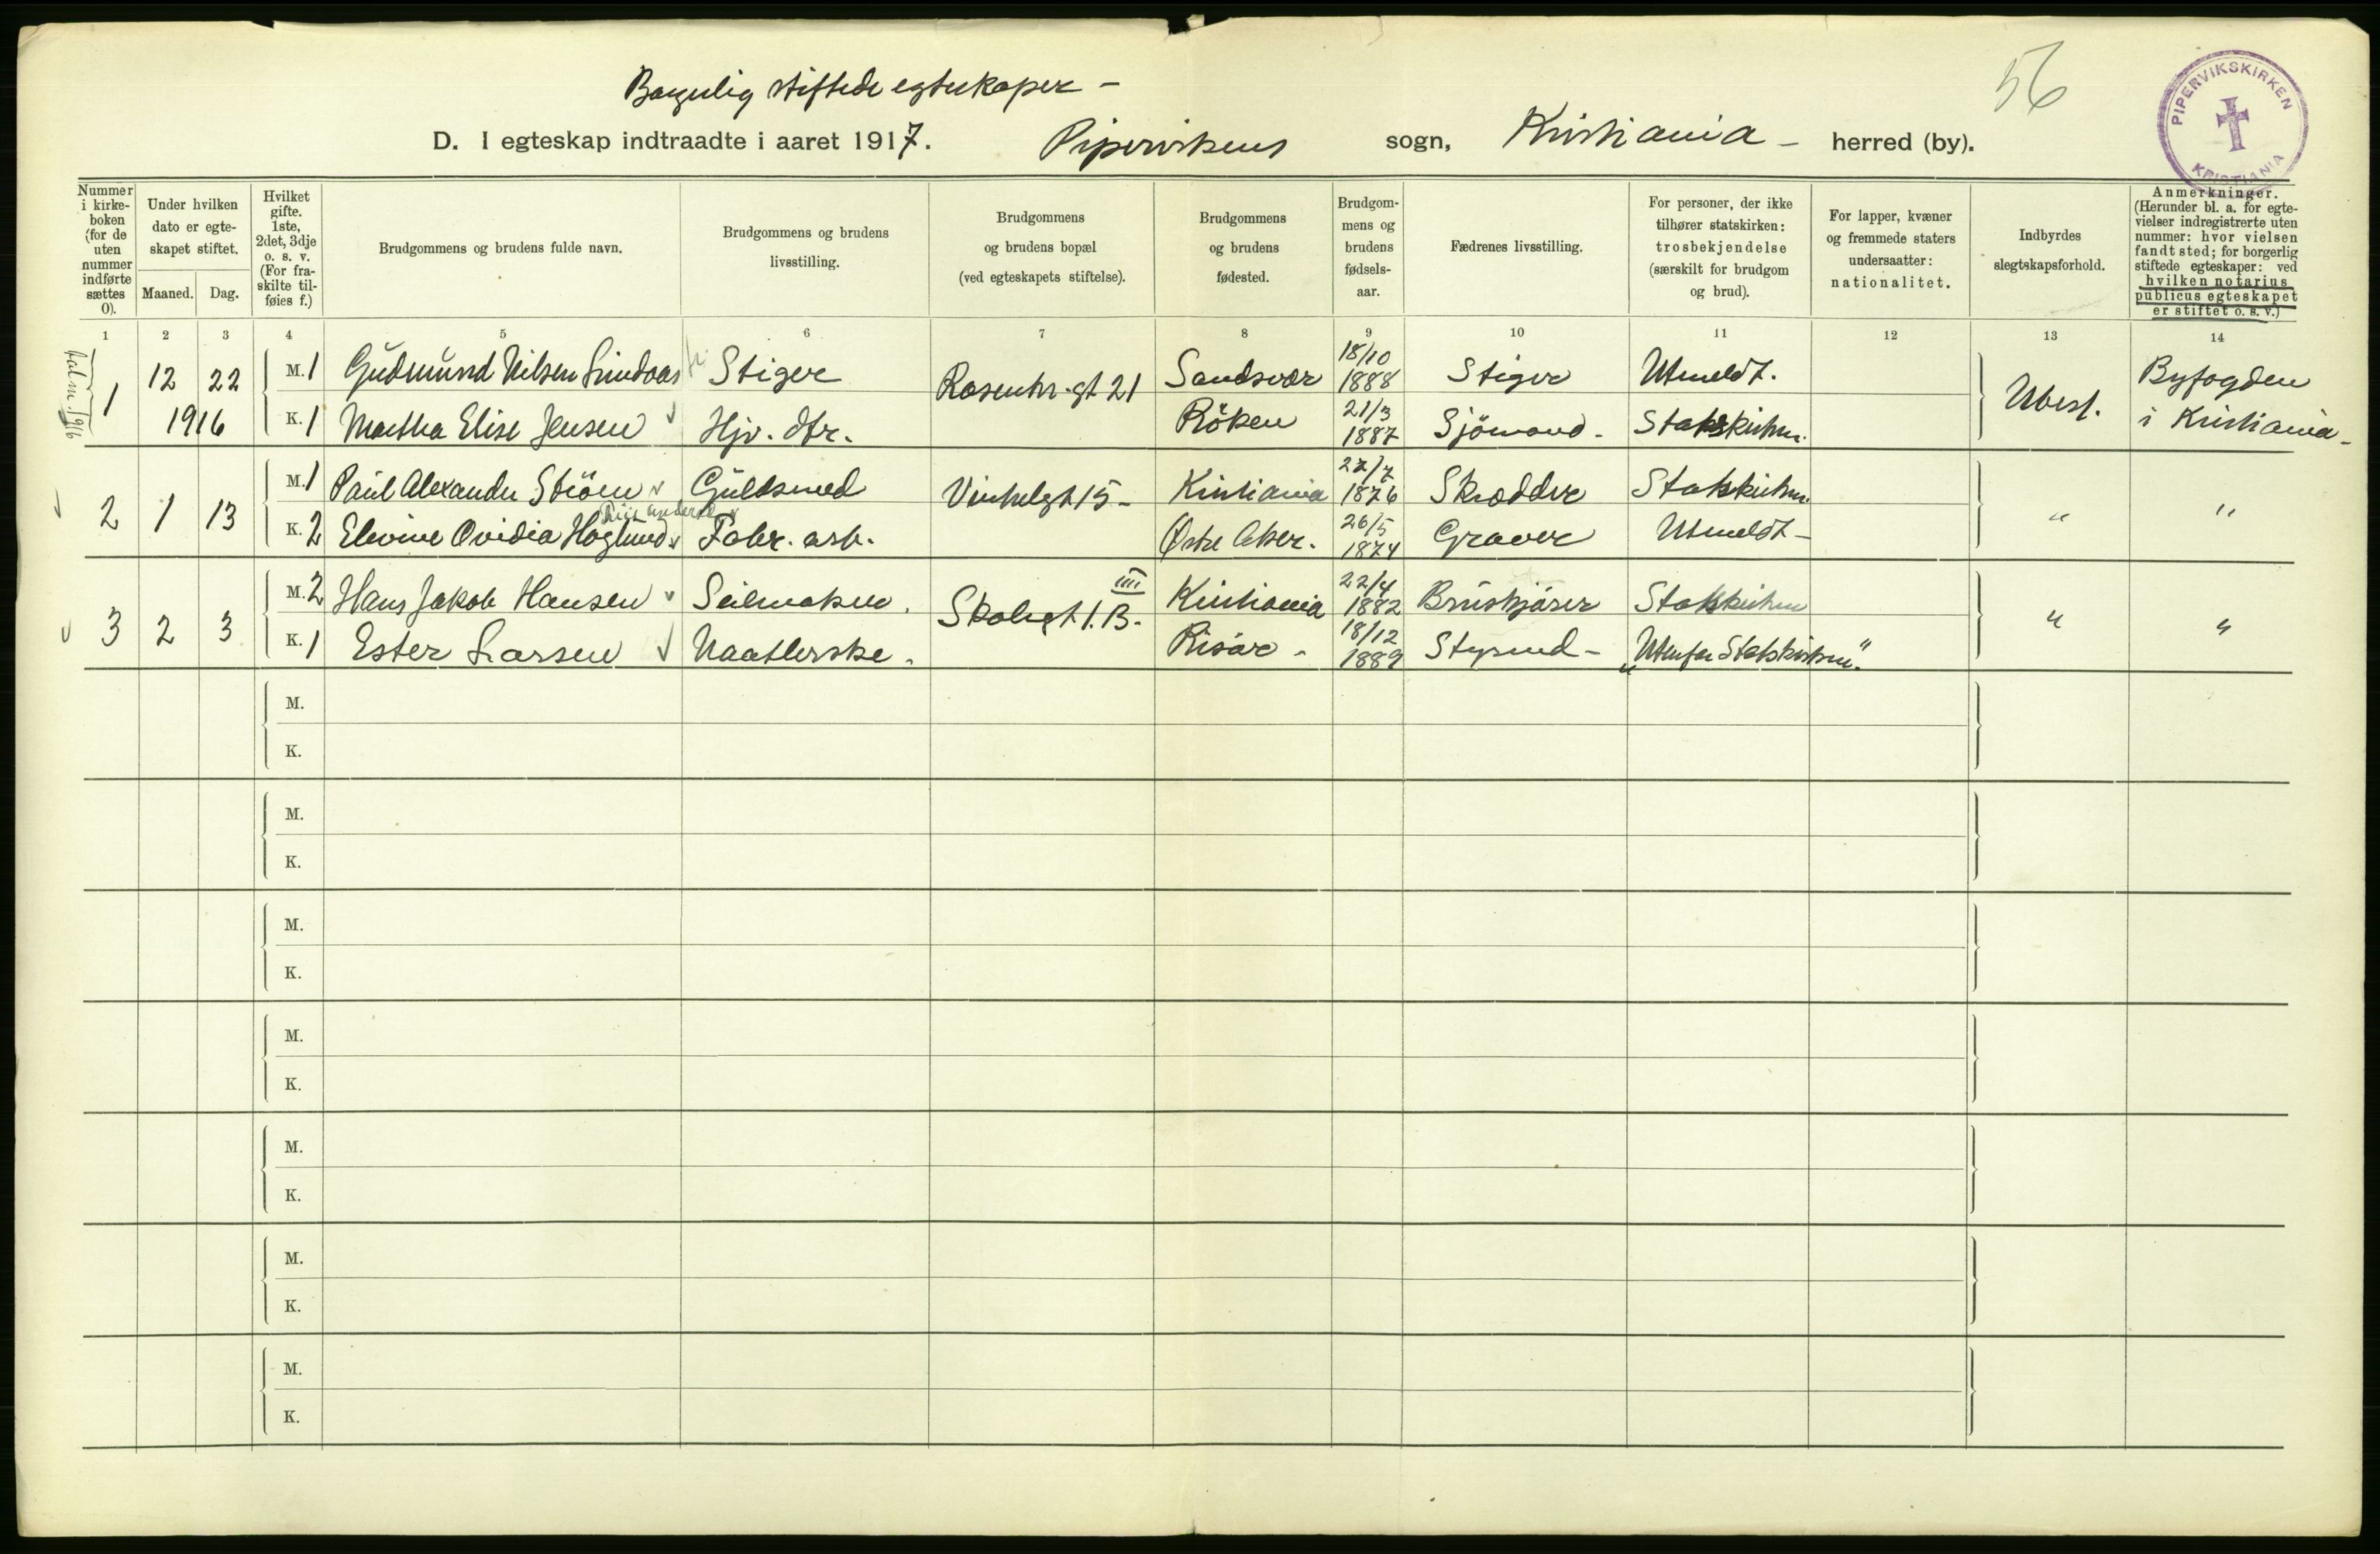 Borgerlig stiftede egteskaper -
56
PIPERVIKSKIRKEN
KRISTIANIA
D. I egteskap indtraadte i aaret 1917. Pipervikens sogn, Kristiania - herred (by).
Nummer i kirke-boken (for de uten nummer indførte sættes 0).
Under hvilken dato er egte-skapet stiftet.
Maaned. Dag.
Hvilket gifte. 1ste, 2det, 3dje o. s. v. (For fra-skilte til-føies f.)
Brudgommens og brudens fulde navn.
Brudgommens og brudens livsstilling.
Brudgommens og brudens bopæl (ved egteskapets stiftelse).
Brudgommens og brudens fødested.
Brudgom-mens og brudens fødsels-aar.
Fædrenes livsstilling.
For personer, der ikke tilhører statskirken: trosbekjendelse (særskilt for brudgom og brud).
For lapper, kvæner og fremmede staters undersaatter: nationalitet.
Indbyrdes slegtskapsforhold.
Anmerkninger. (Herunder bl. a. for egte-vielser indregistrerte uten nummer: hvor vielsen fandt sted; for borgerlig stiftede egteskaper: ved hvilken notarius publicus egteskapet er stiftet o. s. v.)
1 2 3 4 5 6 7 8 9 10 11 12 13 14
1 12 22 M. 1 Gudmund Nilsen Lindaas Stiger Rosenkr.gt 21 Sandsvær 18/10 1888 Stiger Utmeldt. Ubesl. Byfogden
1916 K. 1 Martha Elise Jensen Hjv. dtr. Röken 21/3 1887 Sjömand - Statskirken. i Kristiania -
2 1 13 M. 1 Paul Alexander Ström Guldsmed Vinkelgt 15 - Kristiania 1876 Skrædder Statskirken. " "
K. 2 Elevine Ovidia Höglund Fabr. arb. Östre Aker. 26/5 1874 Graver Utmeldt -
3 2 3 M. 2 Hans Jakob Hansen Seilmaker. Skolegt 1. B. IIII Kristiania 22/4 1882 Bruskjörer Statskirken " "
K. 1 Ester Larsen Naatlerske. Risör - 18/12 1889 Styrmd - "Utenfor Statskirken".
M.
K.
M.
K.
M.
K.
M.
K.
M.
K.
M.
K.
M.
K.